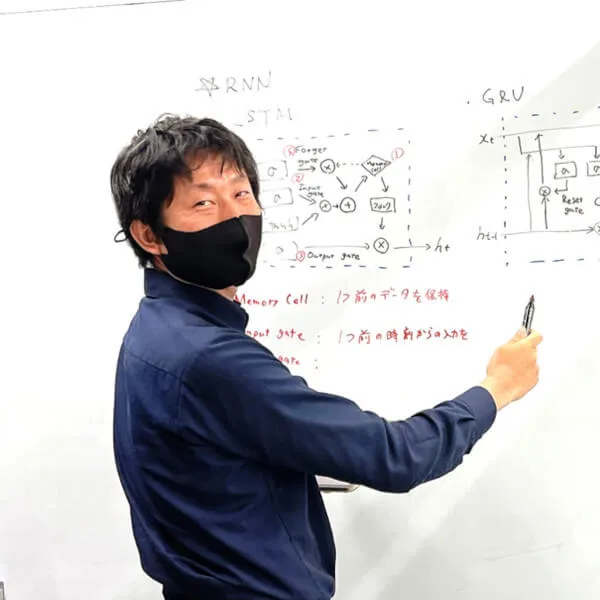 ☆ RNN
STM
① Forget gate
Memory Cell ①
② Input gate
tanh
tanh
③ Output gate
ht
Memory Cell : 1つ前のデータを保持
nput gate : 1つ前の時刻からの入力を
gate :
・GRU
xt
Reset gate
ht-1